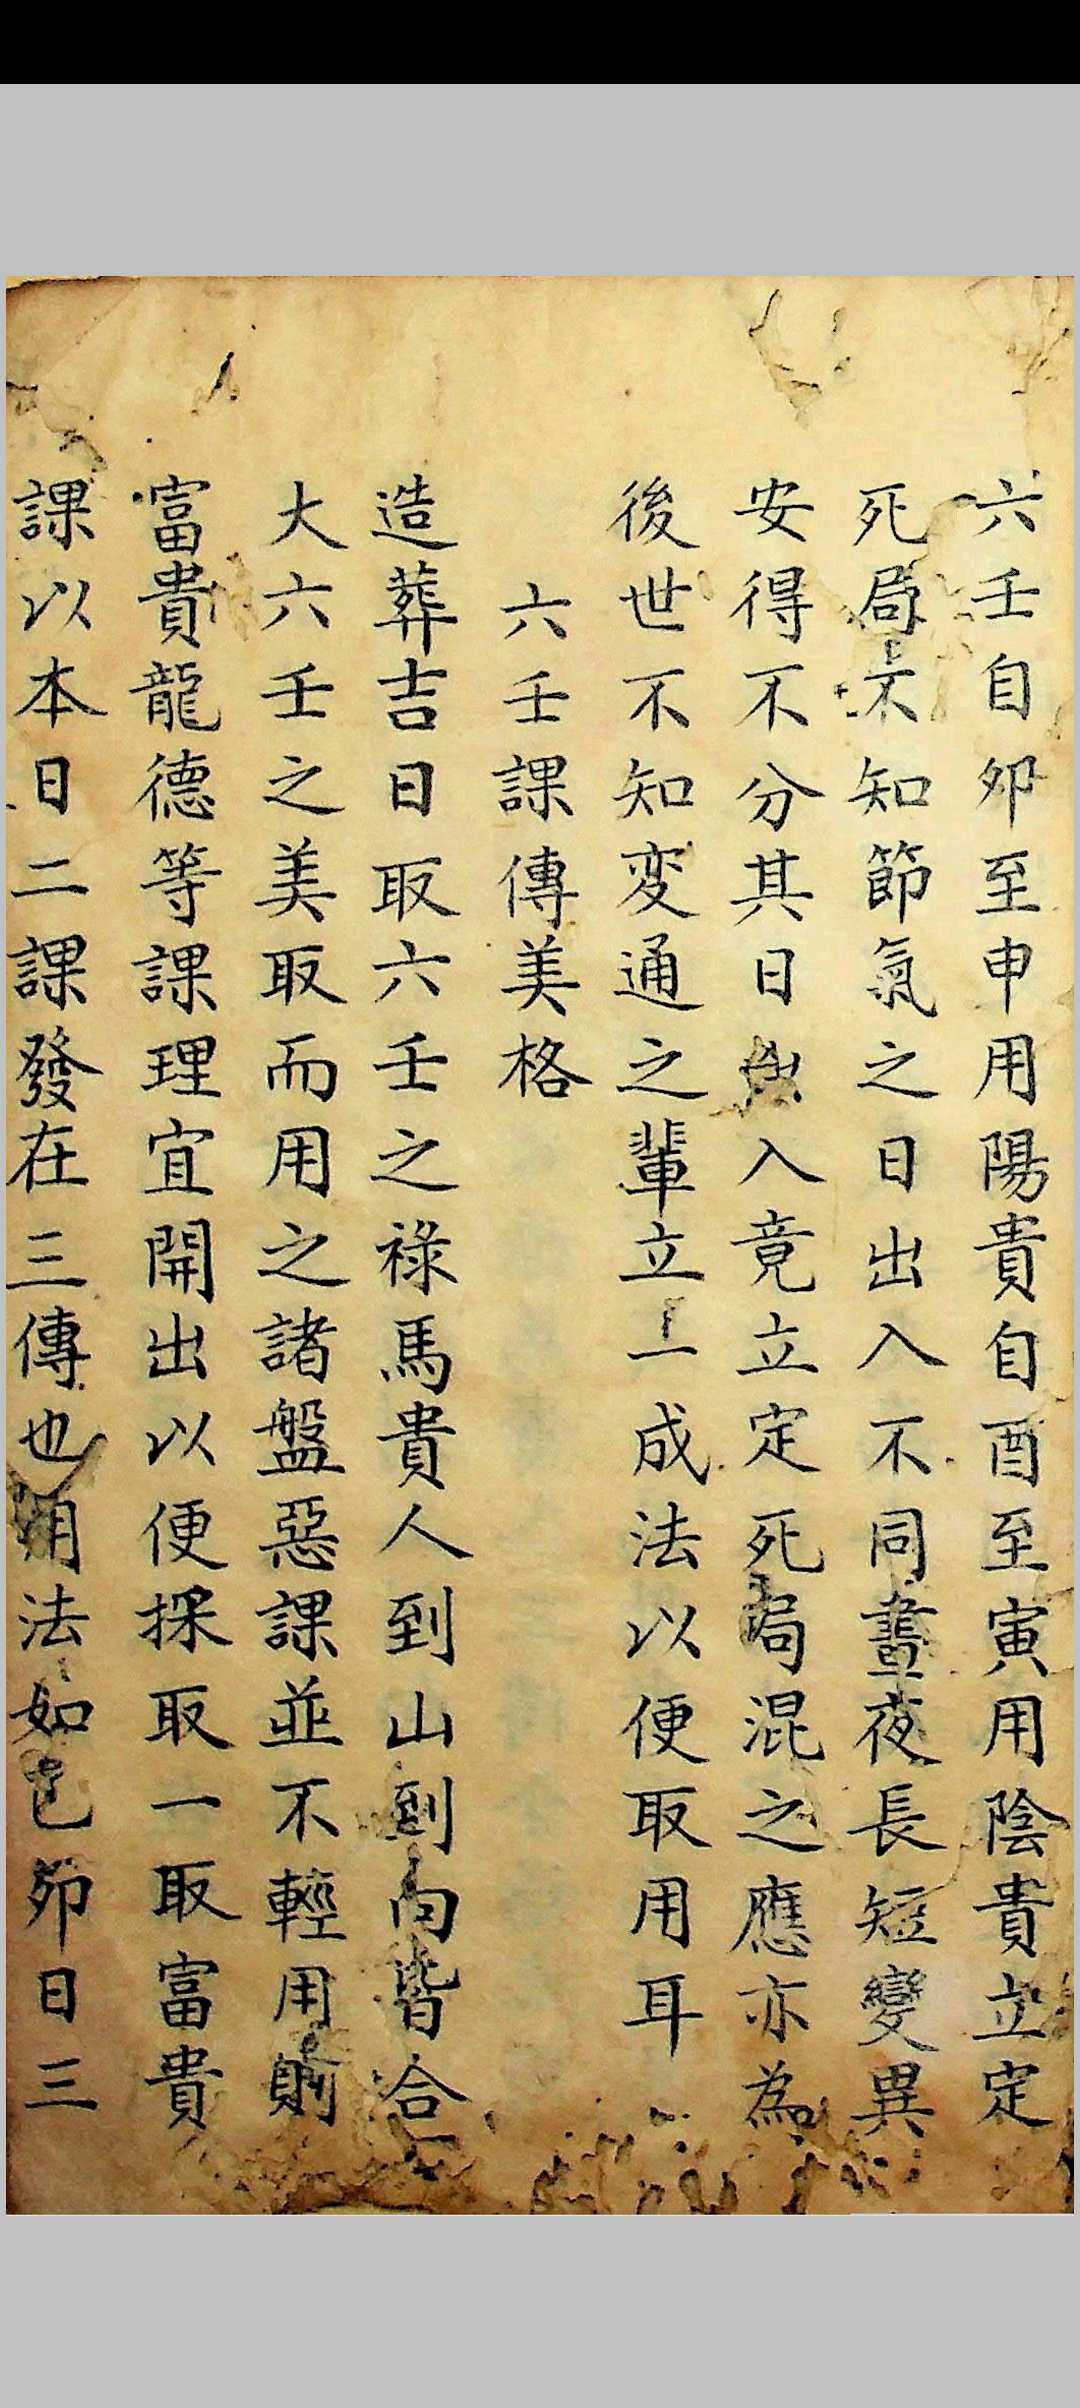 六壬自夘至申用陽貴自酉至寅用陰貴立定
死局不知節氣之日出入不同晝夜長短變異
安得不分其日出入竟立定死局混之應亦為
後世不知変通之輩立一成法以便取用耳
六壬課傳美格
造葬吉日取六壬之祿馬貴人到山到向皆合
大六壬之美取而用之諸盤惡課並不輕用則
富貴龍德等課理宜開出以便採取一取富貴
課以本日二課發在三傳也用法如乙夘日三